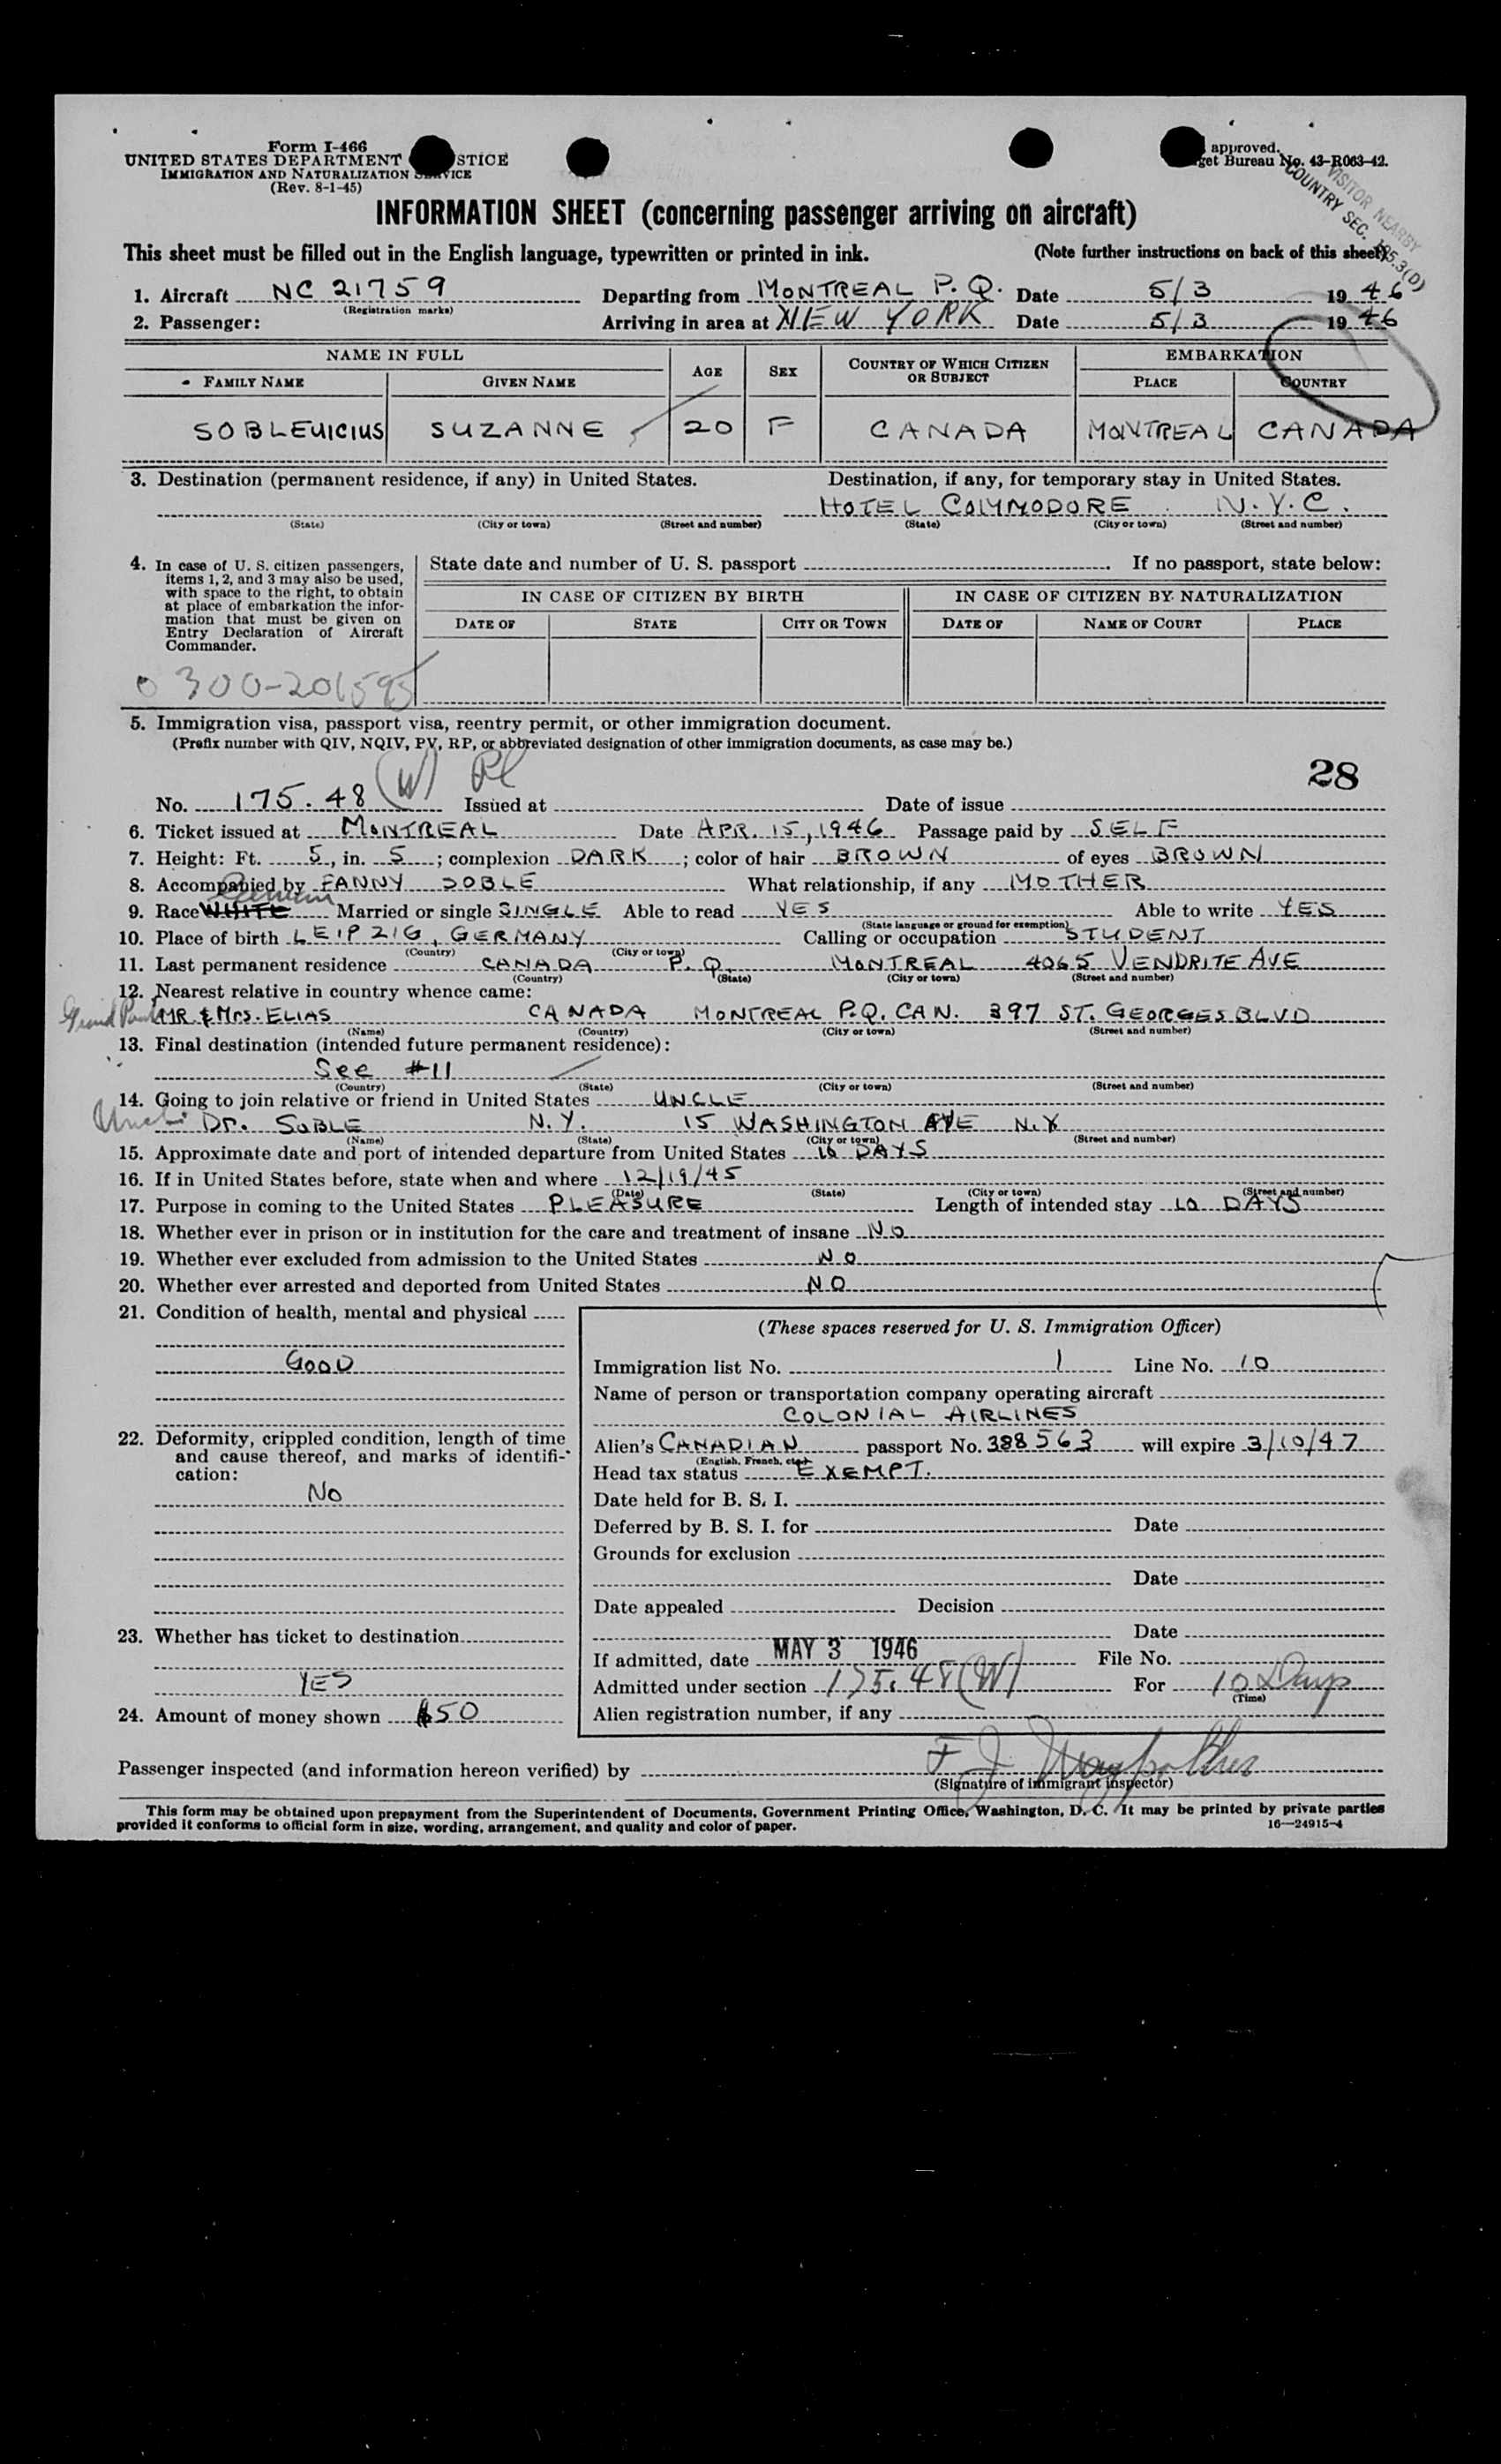 Form I-466
UNITED STATES DEPARTMENT STICE
IMMIGRATION AND NATURALIZATION SERVICE
(Rev. 8-1-45)
approved.
get Bureau No. 43-R063-42.
VISITOR NEARBY
COUNTRY SEC. 175.3(D)
INFORMATION SHEET (concerning passenger arriving on aircraft)
This sheet must be filled out in the English language, typewritten or printed in ink. (Note further instructions on back of this sheet)
1. Aircraft NC 21759 Departing from MONTREAL P.Q. Date 5/3 1946
(Registration marks)
2. Passenger: Arriving in area at NEW YORK Date 5/3 1946
NAME IN FULL AGE SEX COUNTRY OF WHICH CITIZEN OR SUBJECT EMBARKATION
FAMILY NAME GIVEN NAME PLACE COUNTRY
SOBLEVICIUS SUZANNE 20 F CANADA MONTREAL CANADA
3. Destination (permanent residence, if any) in United States. Destination, if any, for temporary stay in United States.
HOTEL COMMODORE N.Y.C.
(State) (City or town) (Street and number) (State) (City or town) (Street and number)
4. In case of U. S. citizen passengers, items 1, 2, and 3 may also be used, with space to the right, to obtain at place of embarkation the information that must be given on Entry Declaration of Aircraft Commander.
State date and number of U. S. passport . If no passport, state below:
IN CASE OF CITIZEN BY BIRTH IN CASE OF CITIZEN BY NATURALIZATION
DATE OF STATE CITY OR TOWN DATE OF NAME OF COURT PLACE
0300-201595
5. Immigration visa, passport visa, reentry permit, or other immigration document.
(Prefix number with QIV, NQIV, PV, RP, or abbreviated designation of other immigration documents, as case may be.)
28
No. 175.48 (W) Issued at Date of issue
6. Ticket issued at MONTREAL Date APR. 15, 1946 Passage paid by SELF
7. Height: Ft. 5, in. 5; complexion DARK; color of hair BROWN of eyes BROWN
8. Accompanied by FANNY SOBLE What relationship, if any MOTHER
9. Race WHITE German Married or single SINGLE Able to read YES Able to write YES
(State language or ground for exemption)
10. Place of birth LEIPZIG, GERMANY Calling or occupation STUDENT
(Country) (City or town)
11. Last permanent residence CANADA P.Q. MONTREAL 4065 VENDRITE AVE
(Country) (State) (City or town) (Street and number)
12. Nearest relative in country whence came:
MR & Mrs. ELIAS CANADA MONTREAL P.Q. CAN. 397 ST. GEORGES BLVD
(Name) (Country) (City or town) (Street and number)
13. Final destination (intended future permanent residence):
See #11
(Country) (State) (City or town) (Street and number)
14. Going to join relative or friend in United States UNCLE
Uncle Dr. SOBLE N.Y. 15 WASHINGTON AVE N.Y
(Name) (State) (City or town) (Street and number)
15. Approximate date and port of intended departure from United States 10 DAYS
16. If in United States before, state when and where 12/19/45
(Date) (State) (City or town) (Street and number)
17. Purpose in coming to the United States PLEASURE Length of intended stay 10 DAYS
18. Whether ever in prison or in institution for the care and treatment of insane NO
19. Whether ever excluded from admission to the United States NO
20. Whether ever arrested and deported from United States NO
21. Condition of health, mental and physical
GOOD
22. Deformity, crippled condition, length of time and cause thereof, and marks of identification:
No
23. Whether has ticket to destination
YES
24. Amount of money shown $50
(These spaces reserved for U. S. Immigration Officer)
Immigration list No. 1 Line No. 10
Name of person or transportation company operating aircraft
COLONIAL AIRLINES
Alien's CANADIAN passport No. 388563 will expire 3/10/47
(English, French, etc.)
Head tax status EXEMPT.
Date held for B. S. I.
Deferred by B. S. I. for Date
Grounds for exclusion
Date
Date appealed Decision
Date
If admitted, date MAY 3 1946 File No.
Admitted under section 175.48(W) For 10 Days
(Time)
Alien registration number, if any
Passenger inspected (and information hereon verified) by F J
(Signature of immigrant inspector)
This form may be obtained upon prepayment from the Superintendent of Documents, Government Printing Office, Washington, D. C. It may be printed by private parties
provided it conforms to official form in size, wording, arrangement, and quality and color of paper. 16—24915-4